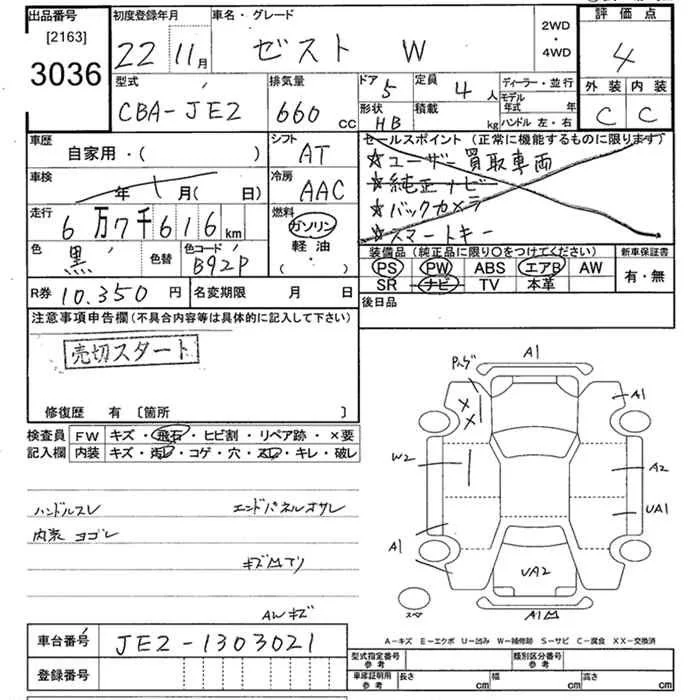 出品番号
[2163]
3036
初度登録年月
22 11月
車名・グレード
ゼスト W
2WD
・
4WD
評価点
4
外装 内装
C C
型式
CBA-JE2
排気量
660 cc
ドア 5
定員 4人
形状 HB
積載 kg
ディーラー・並行
モデル年式 年
ハンドル 左・右
車歴
自家用・( )
シフト
AT
セールスポイント(正常に機能するものに限ります)
☆ユーザー買取車両
☆純正ナビ
☆バックカメラ
☆スマートキー
車検
年 月( 日)
冷房
AAC
走行
6万7千616km
燃料
ガソリン
軽油
( ・ )
色
黒
色替
色コード
B92P
装備品(純正品に限り○をつけてください)
PS PW ABS エアB AW
SR ナビ TV 本革
新車保証書
有・無
R券 10.350円
名変期限 月 日
後日品
注意事項申告欄(不具合内容等は具体的に記入して下さい)
売切スタート
修復歴 有 [箇所 ]
検査員
記入欄
FW キズ・飛石・ヒビ割・リペア跡・×要
内装 キズ・汚レ・コゲ・穴・スレ・キレ・破レ
ハンドルスレ
エンドパネルオサレ
内装 ヨゴレ
AWキズ
A1
A1
W2
A2
UA1
A1
UA2
A1
スペア
A-キズ E-エクボ U-凹み W-補修跡 S-サビ C-腐食 XX-交換済
車台番号
JE2-1303021
登録番号
型式指定番号
参考
類別区分番号
参考
車庫証明用
参考
長さ cm
幅 cm
高さ cm